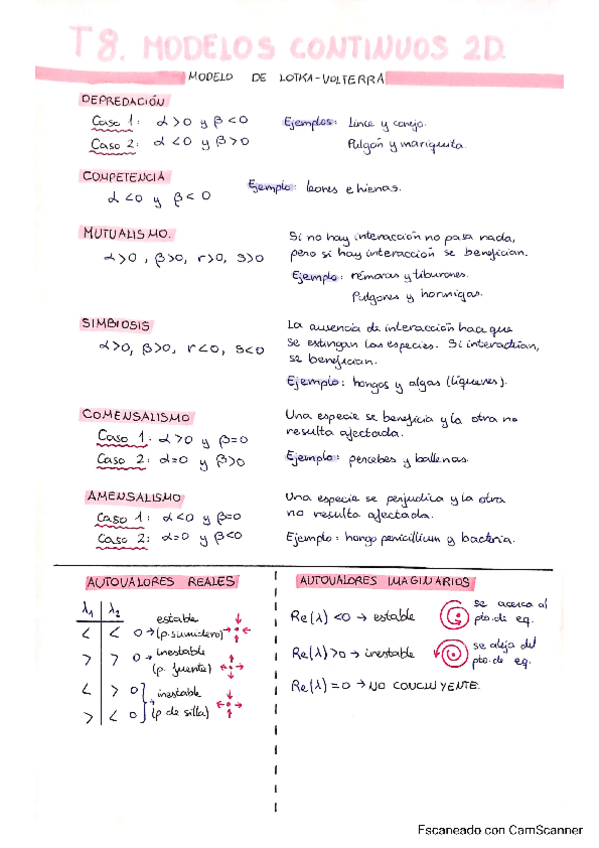 T8. MODELOS CONTINUOS 2D.
MODELO DE LOTKA-VOLTERRA
DEPREDACIÓN
Caso 1: α>0 y β<0
Caso 2: α<0 y β>0
Ejemplos: Lince y conejo.
Pulgón y mariquita.
COMPETENCIA
α<0 y β<0
Ejemplo: leones e hienas.
MUTUALISMO.
α>0, β>0, r>0, s>0
Si no hay interacción no pasa nada,
pero si hay interacción se benefician.
Ejemplo: rémoras y tiburones.
Pulgones y hormigas.
SIMBIOSIS
α>0, β>0, r<0, s<0
La ausencia de interacción hace que
se extingan las especies. Si interactúan,
se benefician.
Ejemplo: hongos y algas (líquenes).
COMENSALISMO
Caso 1: α>0 y β=0
Caso 2: α=0 y β>0
Una especie se beneficia y la otra no
resulta afectada.
Ejemplo: percebes y ballenas.
AMENSALISMO
Caso 1: α<0 y β=0
Caso 2: α=0 y β<0
Una especie se perjudica y la otra
no resulta afectada.
Ejemplo: hongo penicillium y bacteria.
AUTOVALORES REALES
λ1 | λ2
< | < 0 → estable (p.sumidero)
> | > 0 → inestable (p. fuente)
< | > 0
> | < 0
} inestable (p de silla)
AUTOVALORES IMAGINARIOS
Re(λ) <0 → estable
se acerca al
pto. de eq.
Re(λ)>0 → inestable
se aleja del
pto. de eq.
Re(λ)=0 → NO CONCLUYENTE.
Escaneado con CamScanner